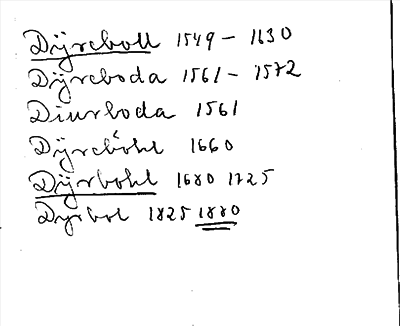 Dÿreboll 1549 - 1630
Dÿreboda 1561 - 1572
Diurboda 1561
Dÿrebòhl 1660
Dÿrbohl 1680 1725
Dyrbol 1825 1880